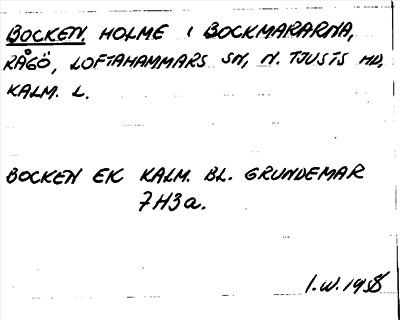 BOCKEN HOLME I BOCKMARARNA,
RÅGÖ, LOFTAHAMMARS SN, N. TJUSTS HD,
KALM. L.
BOCKEN EK KALM. BL. GRUNDEMAR
7H3a.
I.W. 1958